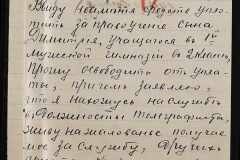 Виду неимѣтя средствъ упла-
тить за правоученіе сына
Димитрія, учащагося въ 1й
мужеской гимназіи въ 2 классѣ,
Прошу освободить отъ упла-
ты, причемъ заявляю,
что я нахожусь на службѣ
въ должности телеграфиста,
живу на жалованье получае-
мое за службу, другихъ